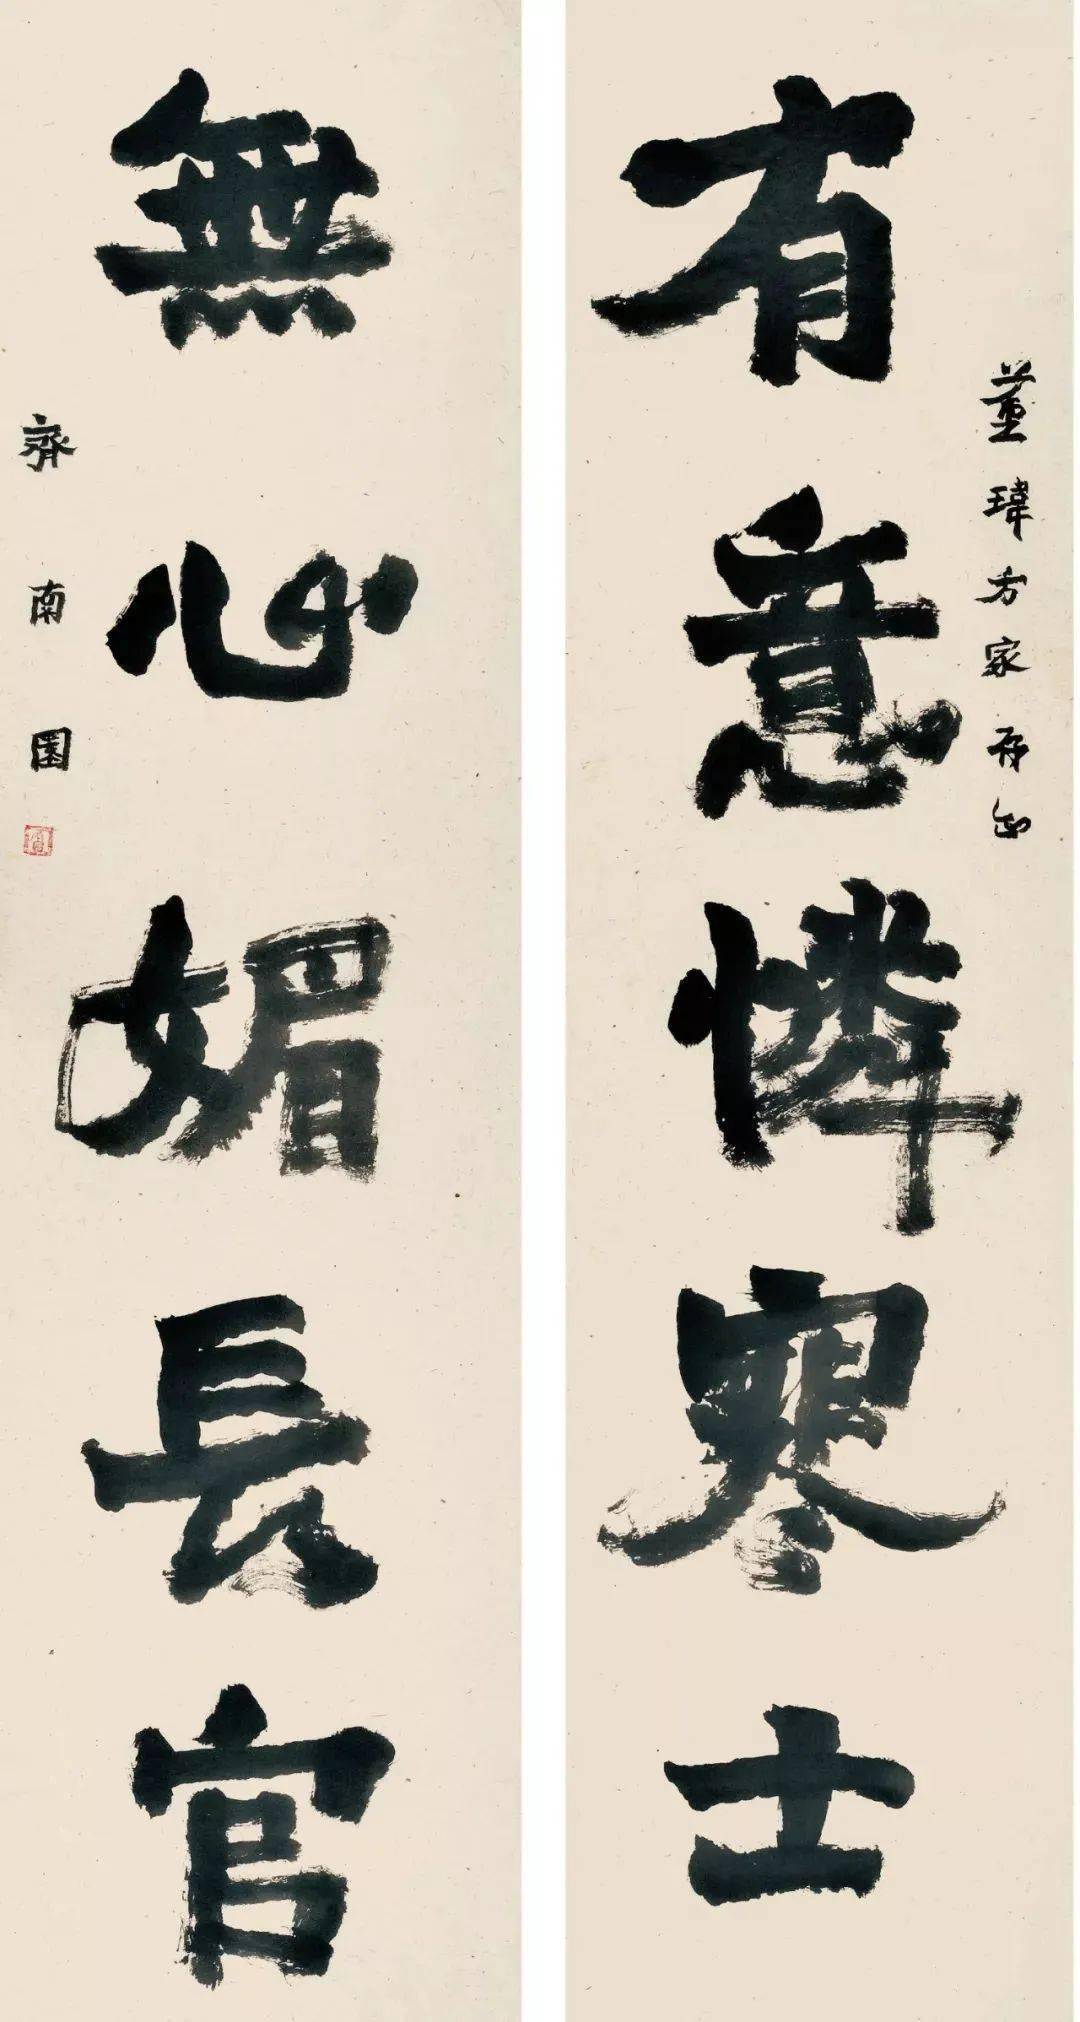 有意憐寒士
董瑋方家存正
無心媚長官
齊南園